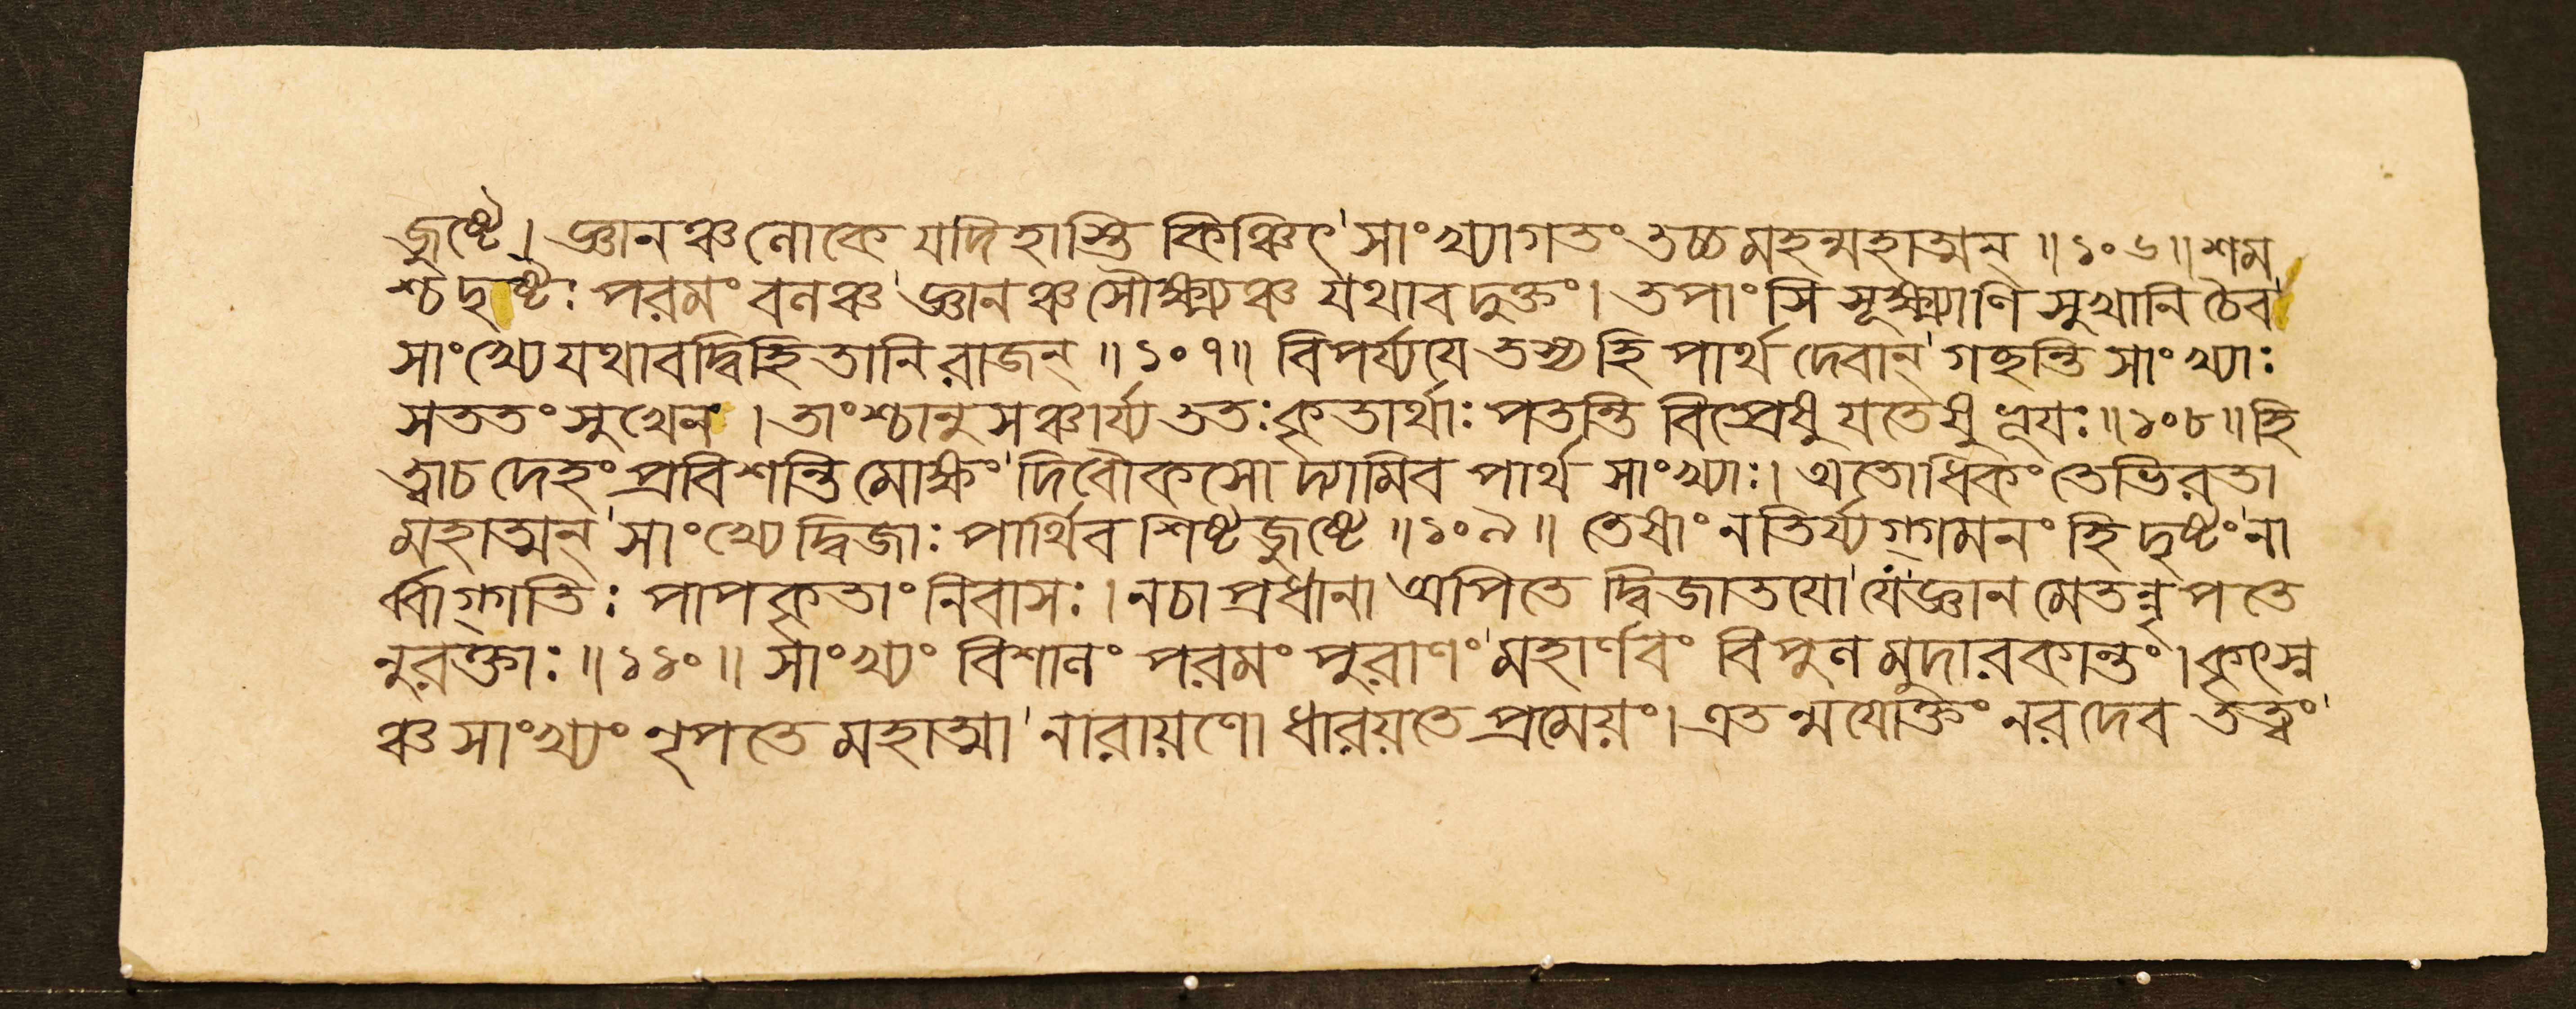 জুষ্টে। জ্ঞানঞ্চ লোকে যদিহাস্তি কিঞ্চিৎ' সাংখ্যাগতং তচ্চ মহন্মহাত্মন্ ॥ ১০৬ ॥ শম
শ্চ দৃষ্টঃ পরমং বলঞ্চ' জ্ঞানঞ্চ সৌক্ষ্ম্যঞ্চ যথাবদুক্তং। তপাংসি সূক্ষ্ম্যাণি সুখানি চৈব'
সাংখ্যে যথাবদ্বিহিতানি রাজন্ ॥ ১০৭ ॥ বিপর্য্যযে তস্য হি পার্থ দেবান্' গচ্ছন্তি সাংখ্যাঃ
সততং সুখেন । তাংশ্চানুসঞ্চার্য্য ততঃ কৃতার্থাঃ পতন্তি বিপ্রেষু যতেষু ভূযঃ ॥ ১০৮ ॥ হি
ত্বাচ দেহং প্রবিশন্তি মোক্ষং' দিবৌকসো দ্যামিব পার্থ সাংখ্যাঃ। অতোধিকং তেভিরতা
মহাত্মন্' সাংখ্যে দ্বিজাঃ পার্থিব শিষ্টজুষ্টে ॥ ১০৯ ॥ তেষাং ন তির্য্যগ্গমনং হি দৃষ্টং' না
র্ব্বাগ্গতিঃ পাপকৃতাং নিবাসঃ। নচাপ্রধানা অপি তে দ্বিজাতযো' যে জ্ঞানমেতন্নৃপতে
নুরক্তাঃ ॥ ১১০ ॥ সাংখ্যং বিশালং পরমং পুরাণং' মহার্ণবং বিপুলমুদারকান্তং। কৃৎস্ন
ঞ্চ সাংখ্যং নৃপতে মহাত্মা' নারায়ণো ধারয়তেপ্রমেয়ং। এতন্মযোক্তং নরদেব তত্ত্বং'